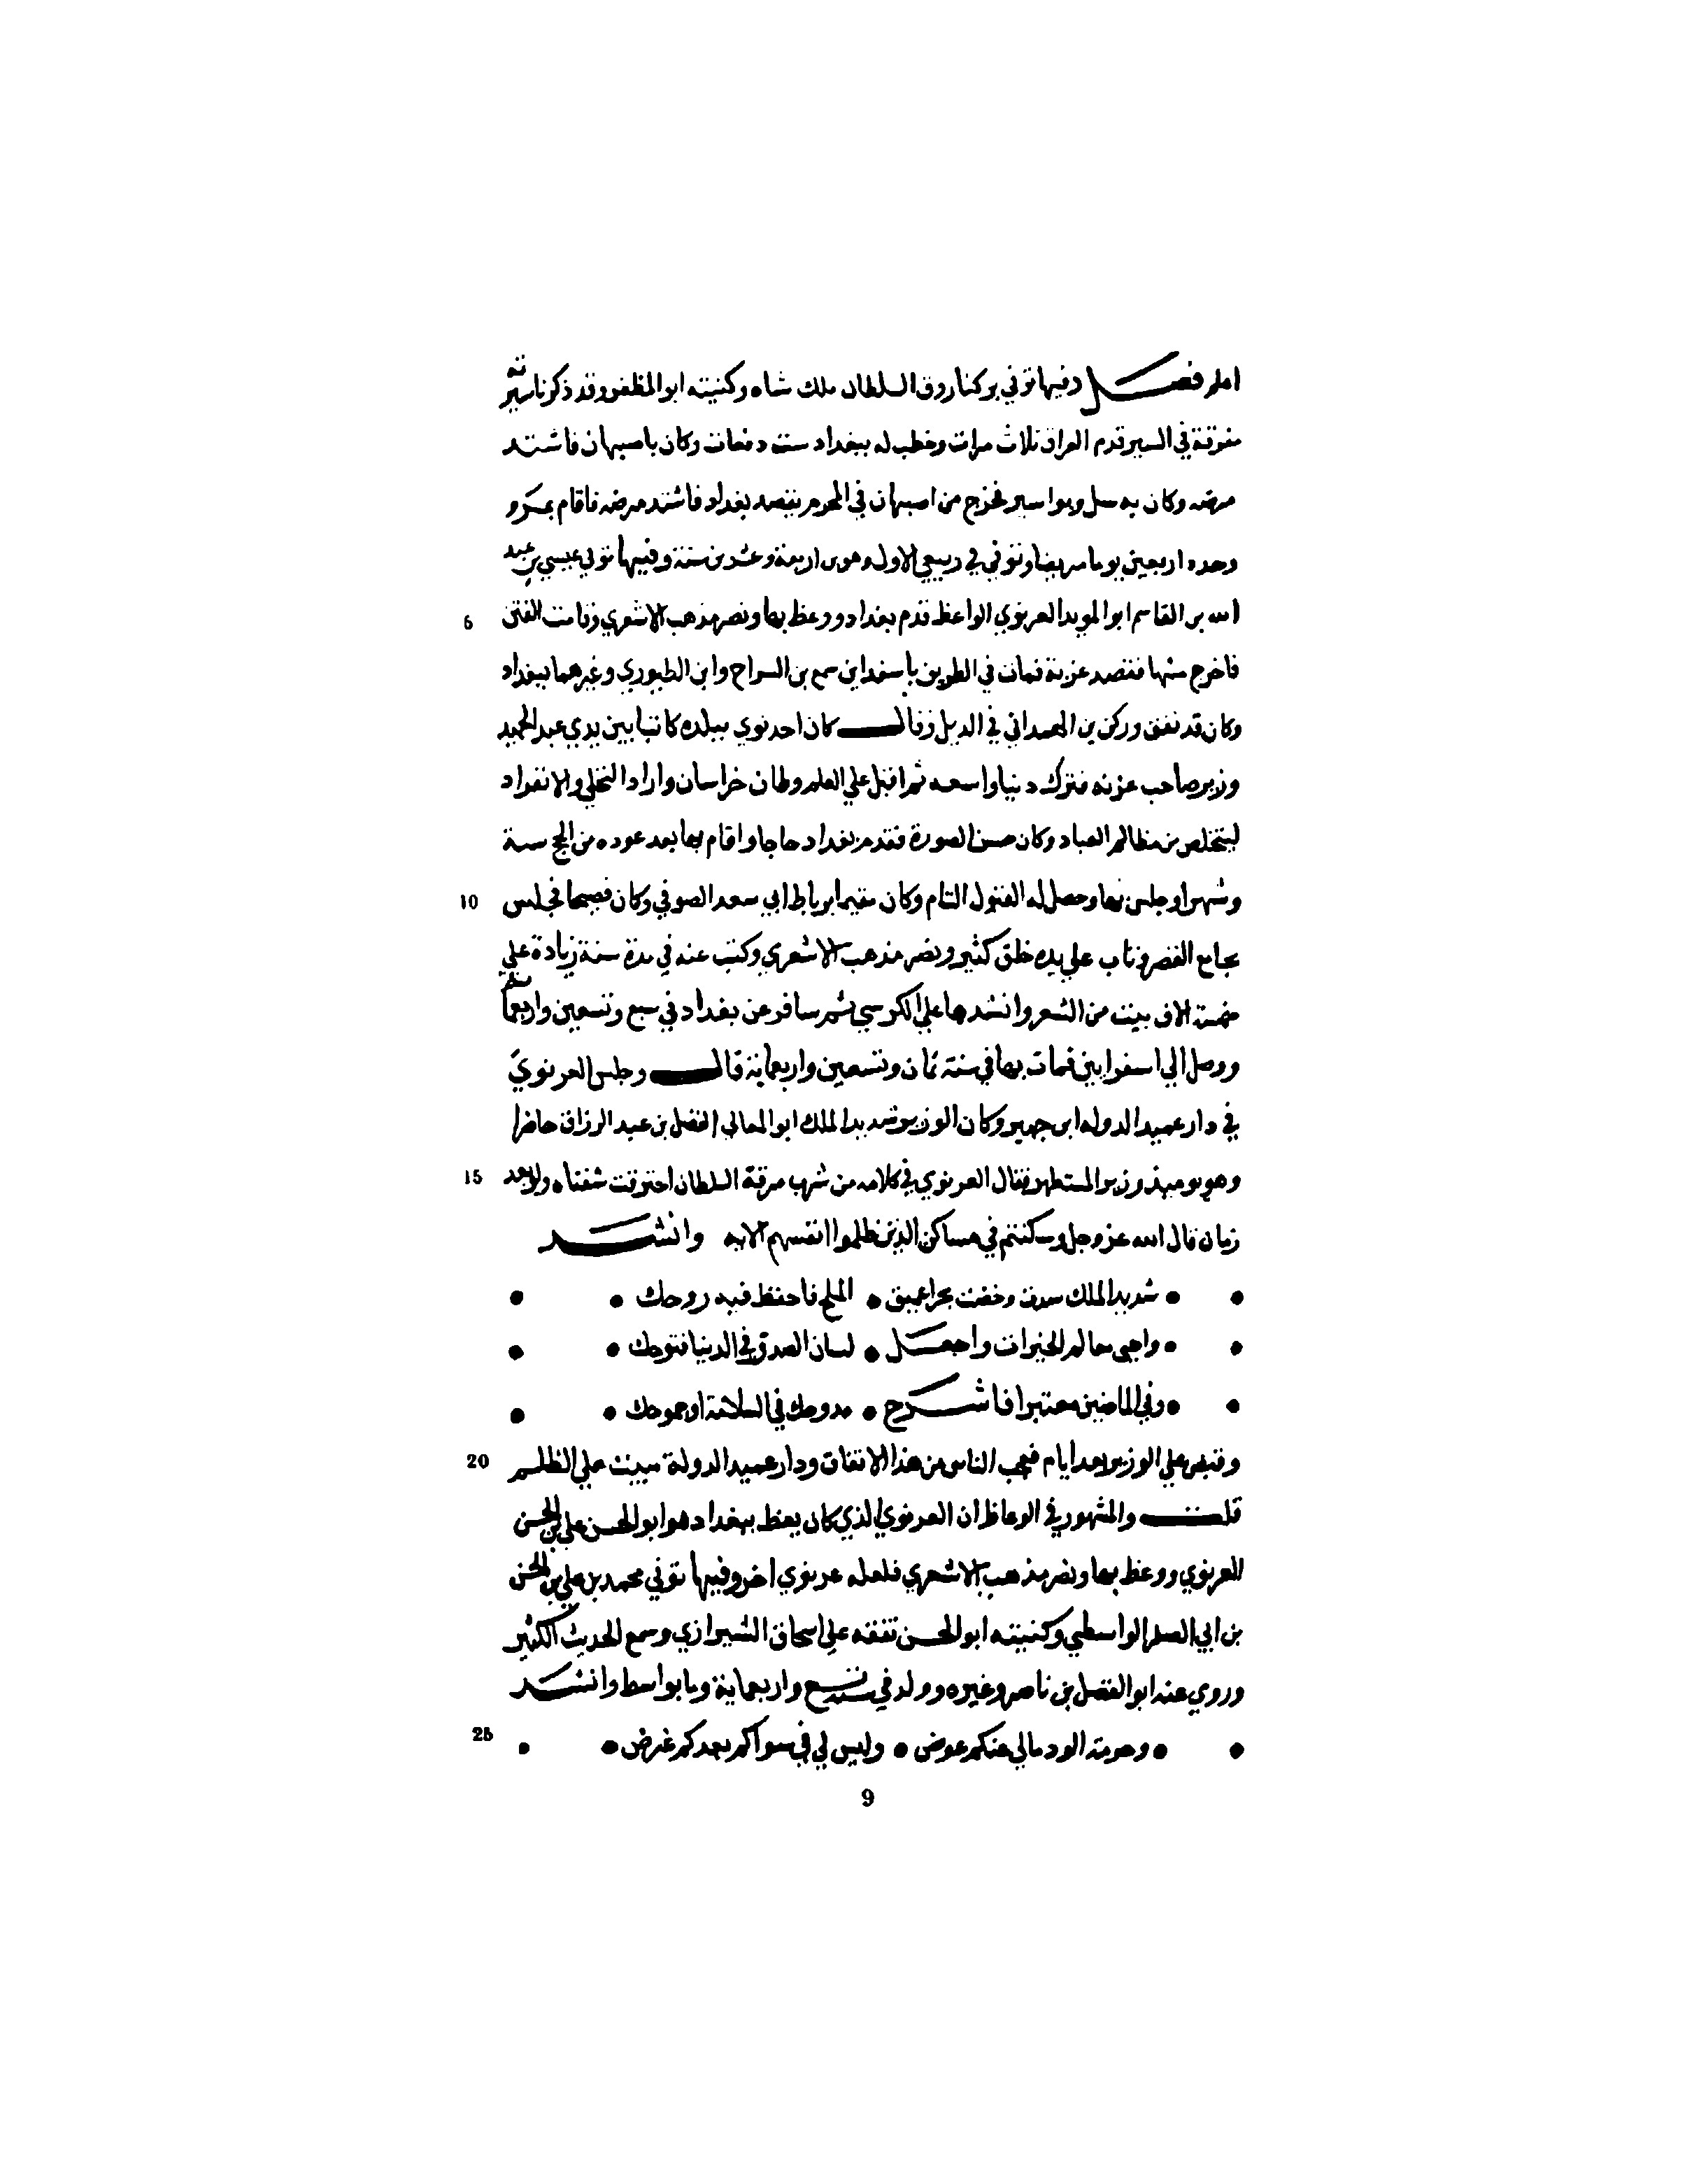 اعلم فصل وفيها توفي بركياروق السلطان ملك شاه وكنيته ابو المظفر وقد ذكرنا سيرته
متفرقة في السير قدم العراق ثلاث مرات وخطب له ببغداد ست دفعات وكان باصبهان فاشتد
مرضه وكان به سل وبواسير فخرج من اصبهان في المحرم يقصد بغداد فاشتد مرضه فاقام ببروجرد
وحده اربعين يوما مريضا وتوفي في ربيع الاول وهو ابن اربعة وعشرين سنة وفيها توفي عيسي بن عبد
الله بن القاسم ابو المويد الغرنوي الواعظ قدم بغداد ووعظ بها ونصر مذهب الاشعري وقامت الفتن
5
فاخرج منها فقصد غزنة فمات في الطريق باسفراين سمع بن السراح وابن الطيوري وغيرهما ببغداد
وكان قد تفقه وذكره بن الهمداني في الذيل وقال كان احد نوي ببلده كاتبا بين يدي عبد الحميد
وزير صاحب غزنه فترك دنيا واسعه ثم اقبل علي العلم وطاف خراسان واراد التخلي والانفراد
ليتخلص من مظالم العباد وكان حسن الصورة فقدم بغداد حاجا واقام بها بعد عوده من الحج سنة
وشهرا وجلس بها وحصل له القبول التام وكان مقيما برباط ابي سعد الصوفي وكان فصيحا فجلس
10
بجامع القصر وتاب علي يده خلق كثير ونصر مذهب الاشعري وكتب عنه في مدة سنة زيادة علي
خمسة الاف بيت من الشعر وانشدها علي الكرسي ثم سافر عن بغداد في سبع وتسعين واربعماية
ووصل الي اسفراين فمات بها في سنة ثمان وتسعين واربعماية قال وجلس الغرنوي
في دار عميد الدوله ابن جهير وكان الوزير شديد الملك ابو المعالي الفضل بن عبد الرزاق حاضرا
وهو يوميذ وزير المستظهر فقال الغرنوي في كلامه من شرب مرقة السلطان احترقت شفتاه ولو بعد
15
زمان قال الله عز وجل وسكنتم في مساكن الذين ظلموا انفسهم الايه وانشد
• • شديد الملك سدت وخضت بحرا عميق • الملح فاحفظ فيه روحك • •
• • واحي معالم الخيرات واجعل • لسان الصدق في الدنيا فتوحك • •
• • وفي الماضين معتبرا فاشرح • مدوحك في السلامة او جموحك • •
وقبض علي الوزير بعد ايام فعجب الناس من هذا الاتفاق ودار عميد الدولة مبيت علي الظلم
20
قلت والمشهور في الوعاظ ان الغرنوي الذي كان يعظ ببغداد هو ابو الحسن علي بن الحسن
الغرنوي ووعظ بها ونصر مذهب الاشعري فلعله غرنوي اخر وفيها توفي محمد بن علي بن الحسن
بن ابي الصقر الواسطي وكنيته ابو الحسن تفقه علي اسحاق الشيرازي وسمع الحديث الكثير
وروي عنه ابو الفضل بن ناصر وغيره وولد في سنة تسع واربعماية ومات بواسط وانشد
• • وحرمة الود مالي عنكم عوض • وليس لي في سواكم بعدكم غرض • •
25
9